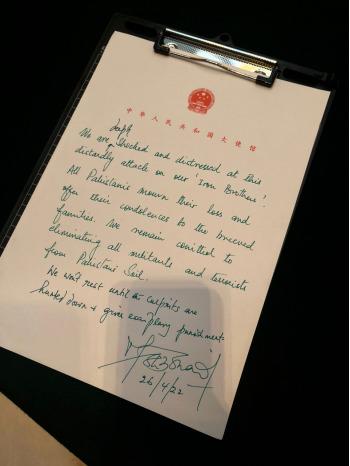 中华人民共和国大使馆
deeply
We are shocked and distressed at this
dastardly attack on our 'Iron Brothers'.
All Pakistanis mourn their loss and
offer their condolences to the breeved
families. We remain comitted to
eliminating all militants and terrorists
from Pakistani Soil.
We won't rest until the culprits are
hunted down & given exemplary punishments
26/4/22